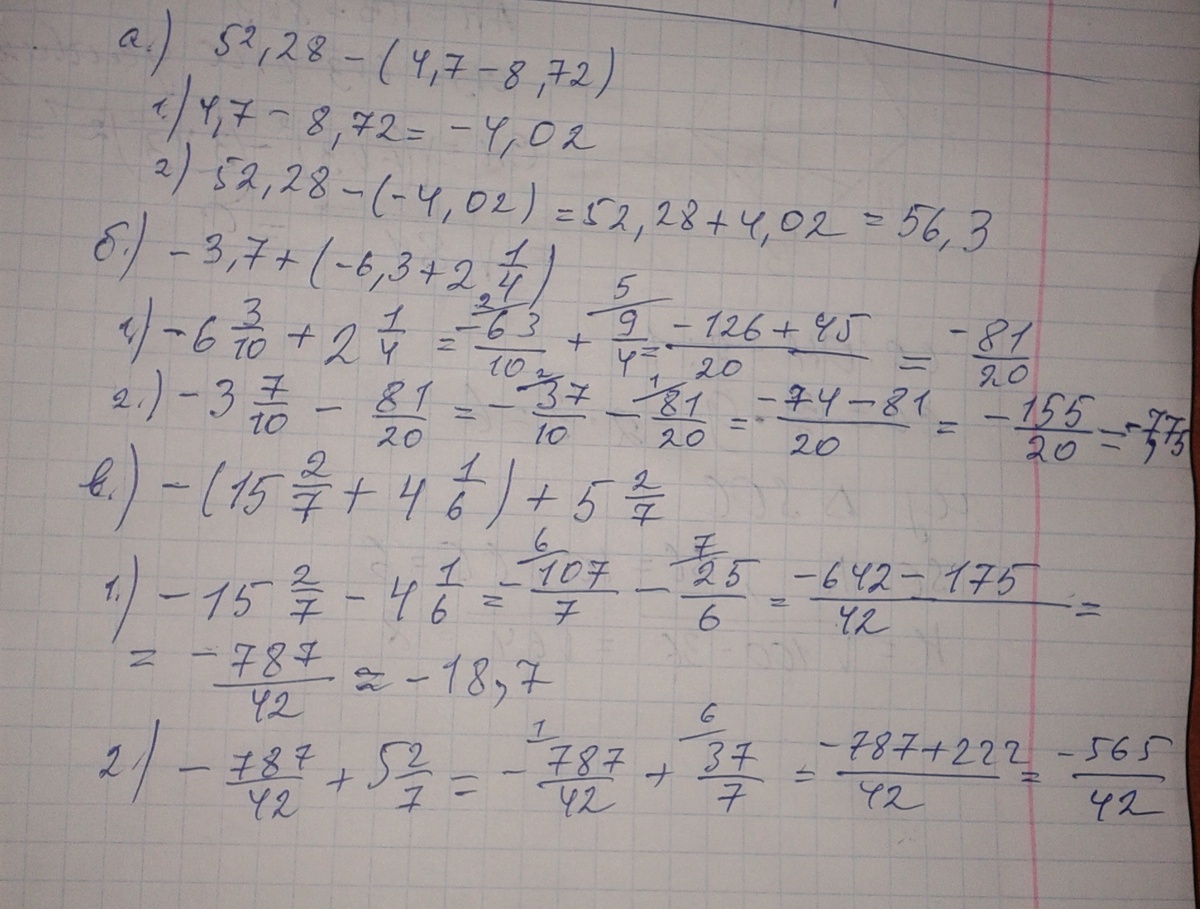 а.) 52,28 - (4,7 - 8,72)
1) 4,7 - 8,72 = -4,02
2) 52,28 - (-4,02) = 52,28 + 4,02 = 56,3
б.) -3,7 + (-6,3 + 2 1/4)
1) -6 3/10 + 2 1/4 = -63/10 (2 + 9/4 (5 = (-126 + 45)/20 = -81/20
2.) -3 7/10 - 81/20 = -37/10 (2 - 81/20 (1 = (-74 - 81)/20 = -155/20 = -7,75
в.) -(15 2/7 + 4 1/6) + 5 2/7
1.) -15 2/7 - 4 1/6 = -107/7 (6 - 25/6 (7 = (-642 - 175)/42 =
= -787/42 ≈ -18,7
2) -787/42 + 5 2/7 = -787/42 (1 + 37/7 (6 = (-787 + 222)/42 = -565/42